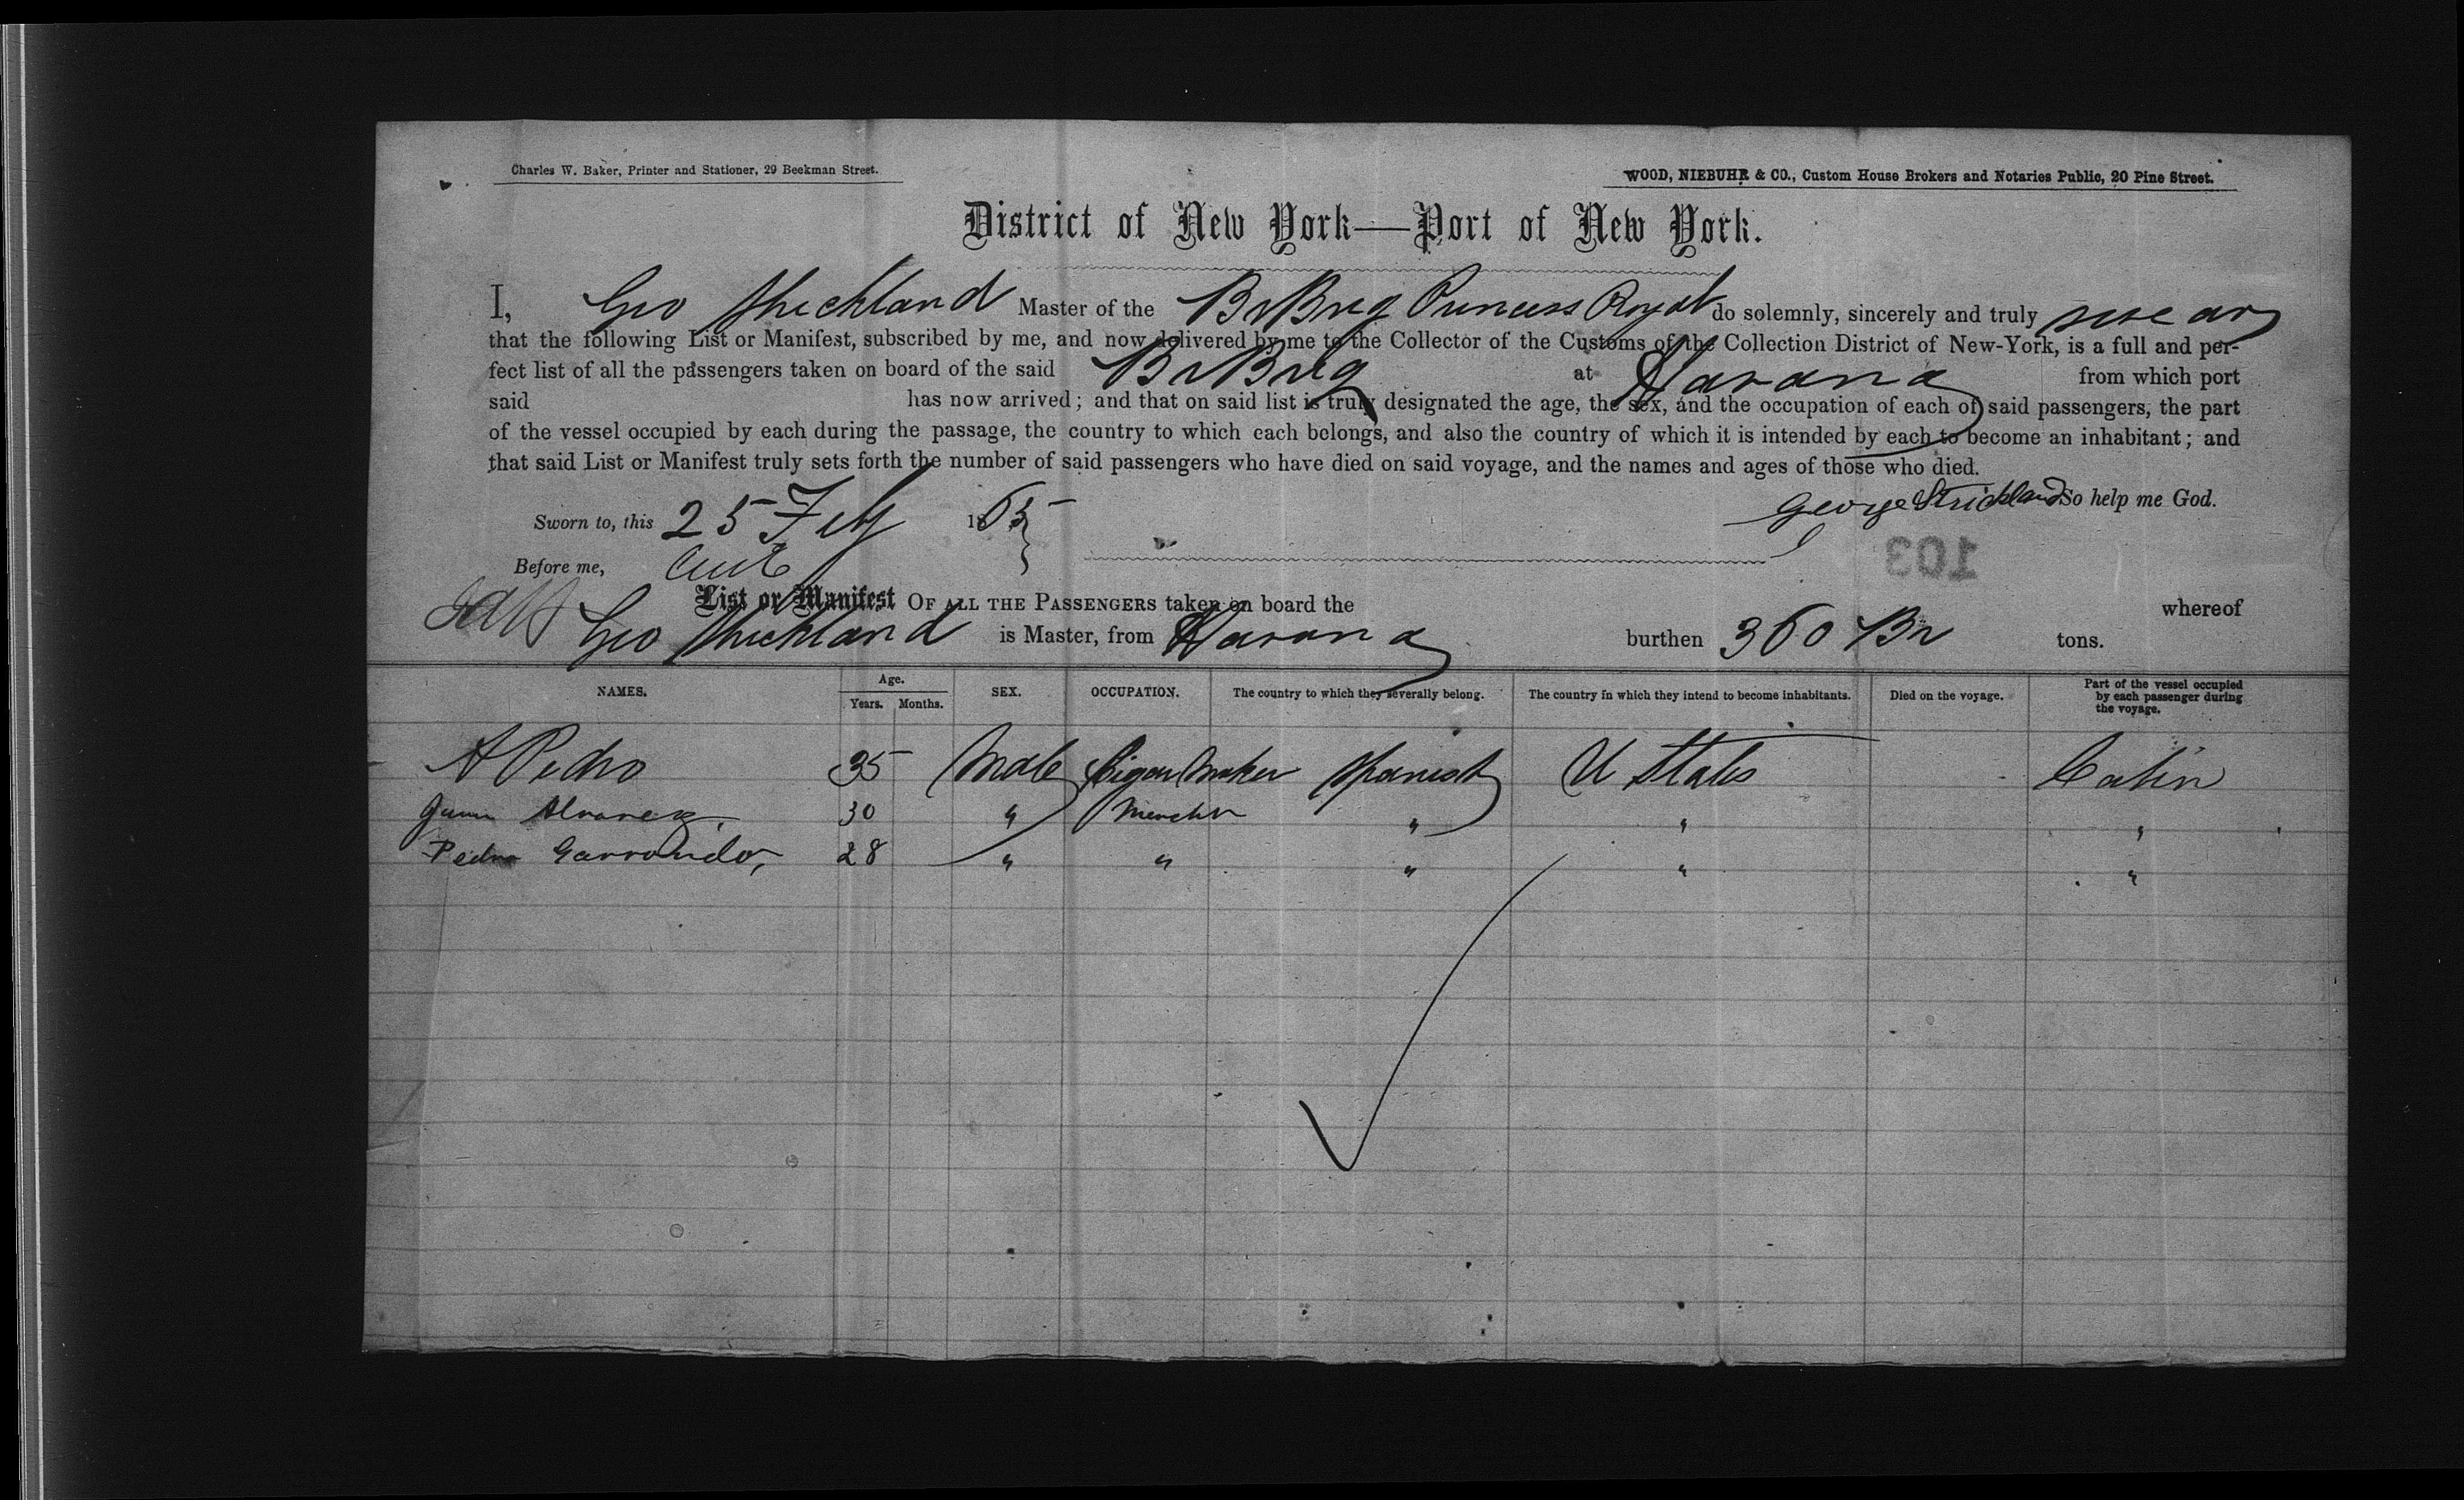 Charles W. Baker, Printer and Stationer, 29 Beekman Street.
WOOD, NIEBUHR & CO., Custom House Brokers and Notaries Public, 20 Pine Street.
District of New York—Port of New York.
I, Geo Strickland Master of the Br Brig Princess Royal do solemnly, sincerely and truly swear
that the following List or Manifest, subscribed by me, and now delivered by me to the Collector of the Customs of the Collection District of New-York, is a full and per-
fect list of all the passengers taken on board of the said Br Brig at Havana from which port
said has now arrived; and that on said list is truly designated the age, the sex, and the occupation of each of said passengers, the part
of the vessel occupied by each during the passage, the country to which each belongs, and also the country of which it is intended by each to become an inhabitant; and
that said List or Manifest truly sets forth the number of said passengers who have died on said voyage, and the names and ages of those who died.
George Strickland So help me God.
Sworn to, this 25 Feby 1865
Before me,
103
List or Manifest OF ALL THE PASSENGERS taken on board the whereof
Geo Strickland is Master, from Havana burthen 360 Br tons.
NAMES. Age. Years. Months. SEX. OCCUPATION. The country to which they severally belong. The country in which they intend to become inhabitants. Died on the voyage. Part of the vessel occupied by each passenger during the voyage.
A Pedro 35 Male Cigar Maker Spanish U States Cabin
Alvarez 30 " Mercht " " "
Pedro Garrondo, 28 " " " " "